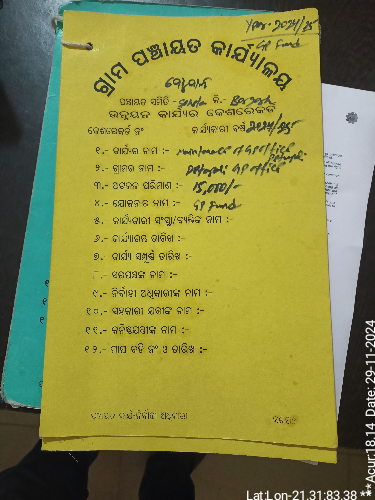 Year-2024/25
GP Fund
ଗ୍ରାମ ପଞ୍ଚାୟତ କାର୍ଯ୍ୟାଳୟ
ପଞ୍ଚାୟତ ସମିତି - ଜି.-
ଉନ୍ନୟନ କାର୍ଯ୍ୟର କେଶରେକର୍ଡ
କେଶରେକର୍ଡ ନଂ କାର୍ଯ୍ୟକାରୀ ବର୍ଷ 2024/25
୧.- କାର୍ଯ୍ୟର ନାମ :- maintenance of GP office
୨.- ଗ୍ରାମର ନାମ :- GP office
୩.- ଅଟକଳ ପରିମାଣ :- 15,000/-
୪.- ଯୋଜନାର ନାମ :- GP Fund
୫. କାର୍ଯ୍ୟକାରୀ ସଂସ୍ଥା/ବ୍ୟକ୍ତିଙ୍କ ନାମ :-
୬.- କାର୍ଯ୍ୟାରମ୍ଭ ତାରିଖ :-
୭.- କାର୍ଯ୍ୟ ସମ୍ପୂର୍ଣ୍ଣ ତାରିଖ :-
୮.- ସରପଞ୍ଚଙ୍କ ନାମ :-
୯.- ନିର୍ବାହୀ ଅଧିକାରୀଙ୍କ ନାମ :-
୧୦.- ସହକାରୀ ଯନ୍ତ୍ରୀଙ୍କ ନାମ :-
୧୧.- କନିଷ୍ଠଯନ୍ତ୍ରୀଙ୍କ ନାମ :-
୧୨.- ମାପ ବହି ନଂ ଓ ତାରିଖ :-
ପଞ୍ଚାୟତ କାର୍ଯ୍ୟନିର୍ବାହୀ ଅଧିକାରୀ ସରପଞ୍ଚ
Lat:Lon-21.31:83.38
**Acur:18.14 Date: 29-11-2024